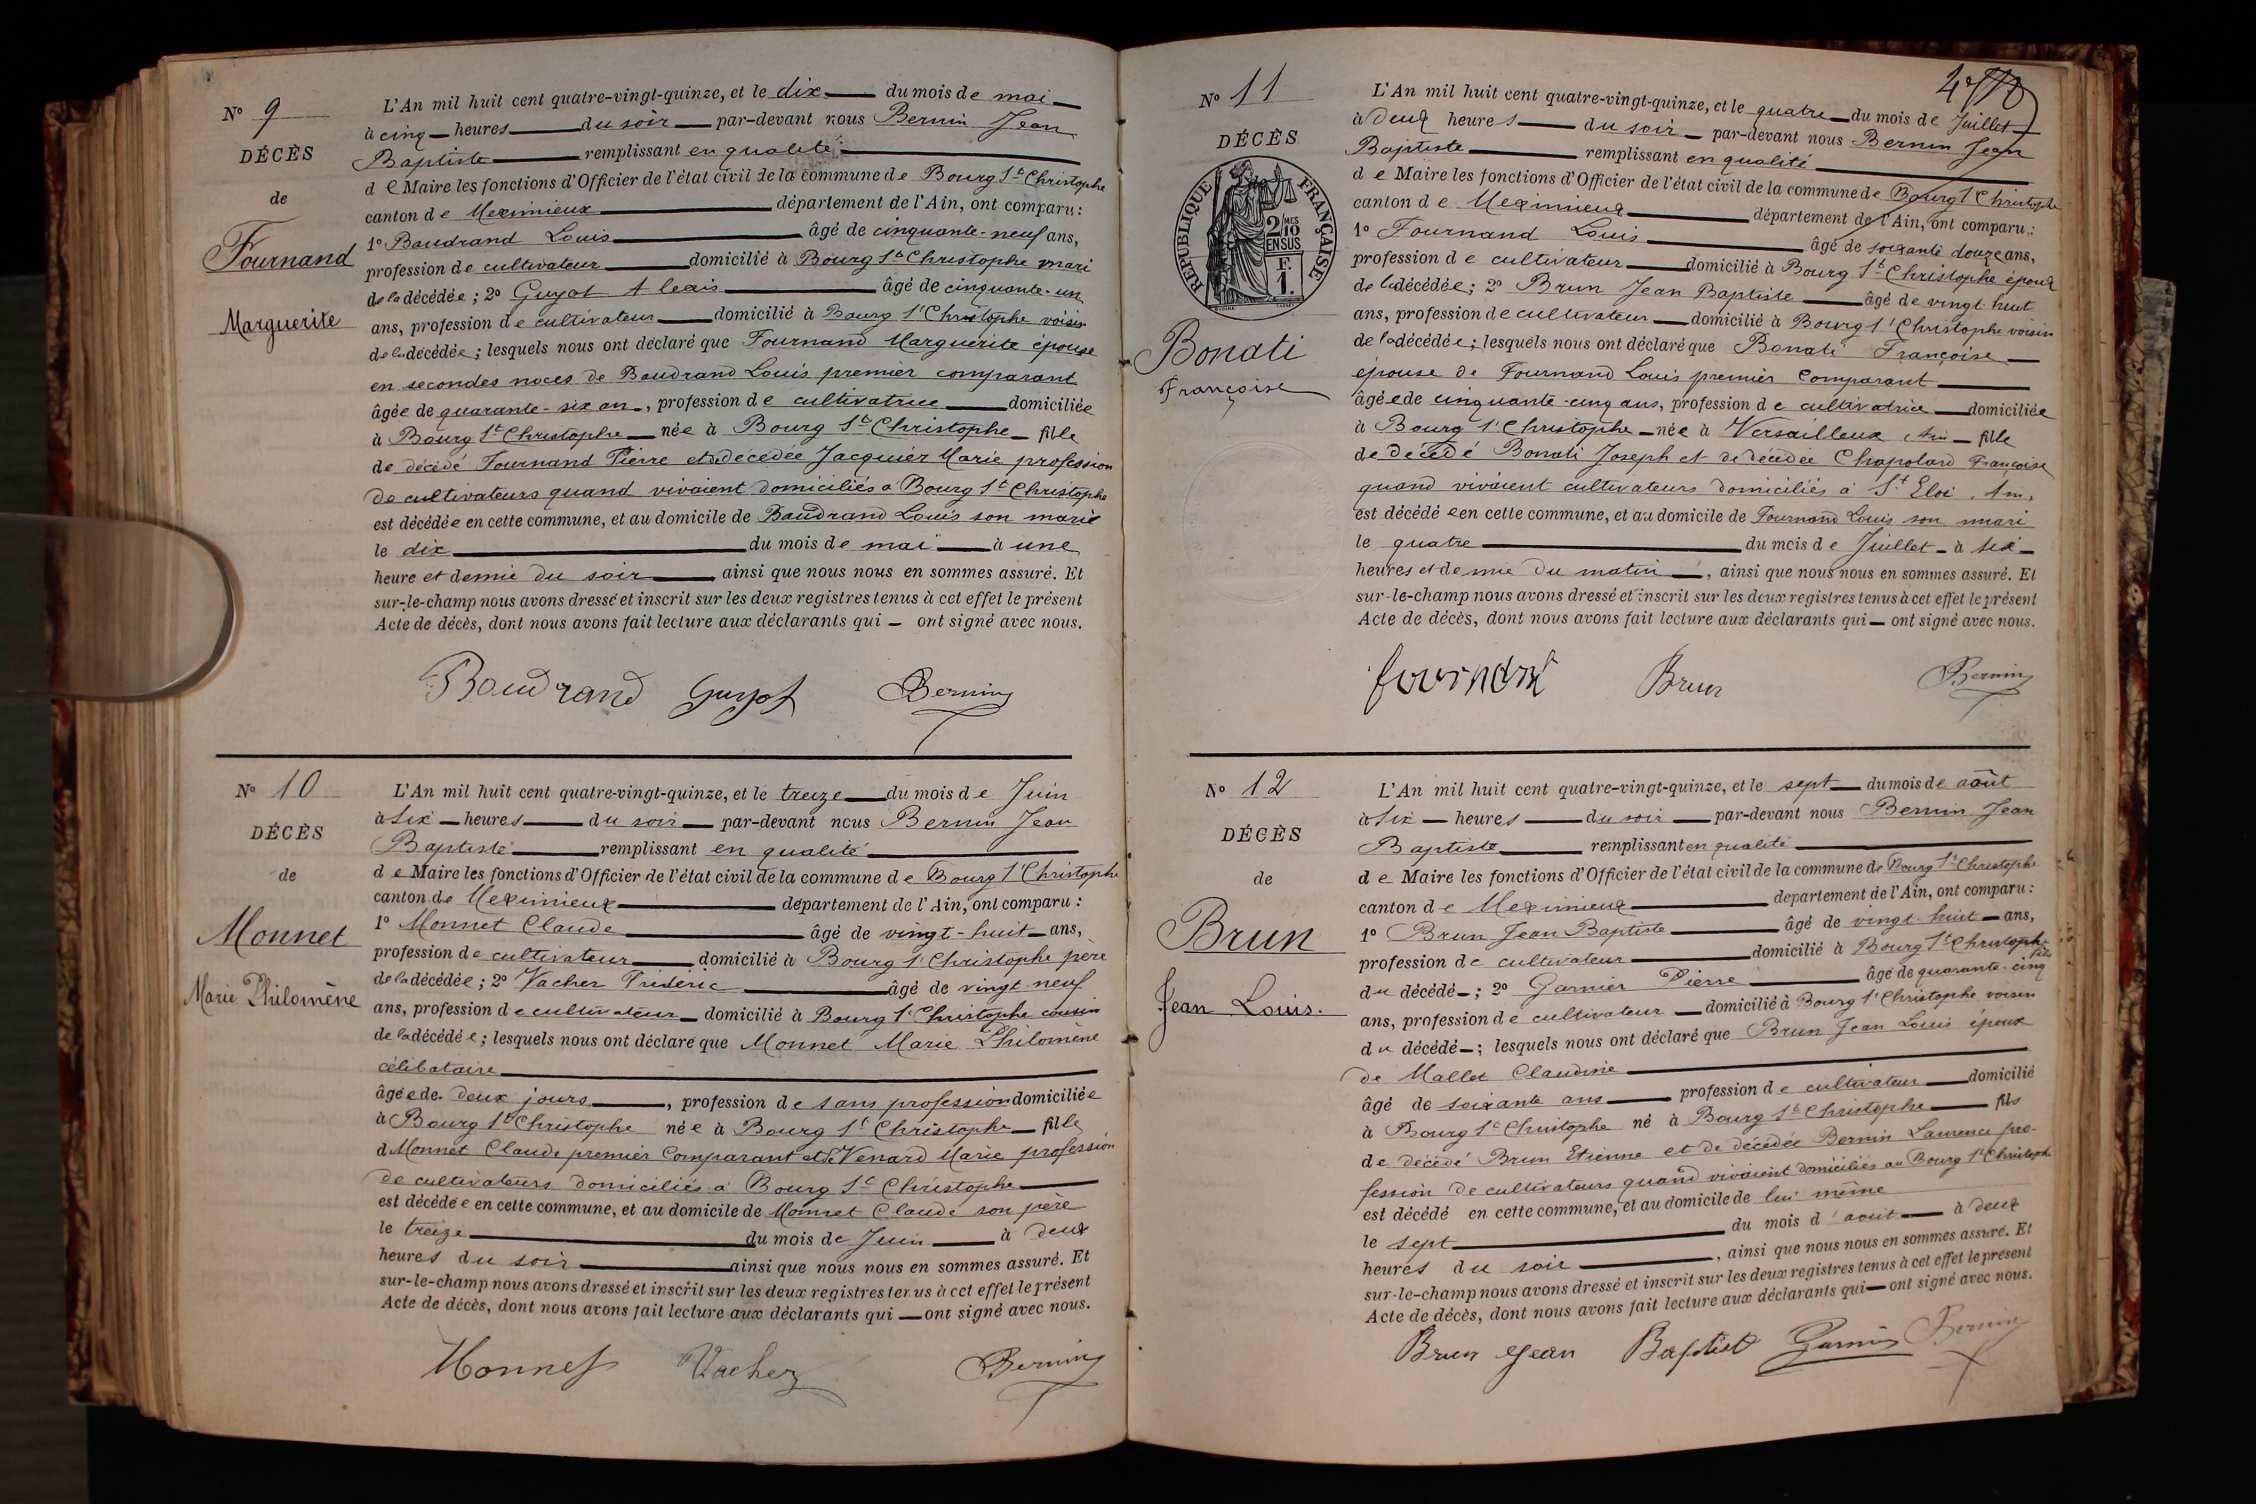 N° 9
DÉCÈS
de
Fournand
Marguerite
L'An mil huit cent quatre-vingt-quinze, et le dix du mois de mai
à cinq heures du soir par-devant nous Bernin Jean
Baptiste remplissant en qualité
de Maire les fonctions d'Officier de l'état civil de la commune de Bourg St Christophe
canton de Meximieux département de l'Ain, ont comparu :
1° Baudrand Louis âgé de cinquante-neuf ans,
profession de cultivateur domicilié à Bourg St Christophe mari
de la décédée ; 2° Guyot Alexis âgé de cinquante-un
ans, profession de cultivateur domicilié à Bourg St Christophe voisin
de la décédée ; lesquels nous ont déclaré que Fournand Marguerite épouse
en secondes noces de Baudrand Louis premier comparant
âgée de quarante-six an, profession de cultivatrice domiciliée
à Bourg St Christophe née à Bourg St Christophe fille
de décédé Fournand Pierre et de décédée Jacquier Marie profession
de cultivateurs quand vivaient domiciliés à Bourg St Christophe
est décédée en cette commune, et au domicile de Baudrand Louis son marie
le dix du mois de mai à une
heure et demie du soir ainsi que nous nous en sommes assuré. Et
sur-le-champ nous avons dressé et inscrit sur les deux registres tenus à cet effet le présent
Acte de décès, dont nous avons fait lecture aux déclarants qui ont signé avec nous.
Baudrand Guyot Bernin
N° 10
DÉCÈS
de
Monnet
Marie Philomène
L'An mil huit cent quatre-vingt-quinze, et le treize du mois de Juin
à six heures du soir par-devant nous Bernin Jean
Baptiste remplissant en qualité
de Maire les fonctions d'Officier de l'état civil de la commune de Bourg St Christophe
canton de Meximieux département de l'Ain, ont comparu :
1° Monnet Claude âgé de vingt-huit ans,
profession de cultivateur domicilié à Bourg St Christophe père
de la décédée ; 2° Vacher Fréderic âgé de vingt neuf
ans, profession de cultivateur domicilié à Bourg St Christophe cousin
de la décédée ; lesquels nous ont déclaré que Monnet Marie Philomène
célibataire
âgée de deux jours, profession de sans profession domiciliée
à Bourg St Christophe née à Bourg St Christophe fille
d Monnet Claude premier Comparant et de Venard Marie profession
de cultivateurs domiciliés à Bourg St Christophe
est décédée en cette commune, et au domicile de Monnet Claude son père
le treize du mois de Juin à deux
heures du soir ainsi que nous nous en sommes assuré. Et
sur-le-champ nous avons dressé et inscrit sur les deux registres tenus à cet effet le présent
Acte de décès, dont nous avons fait lecture aux déclarants qui ont signé avec nous.
Monnet Vacher Bernin
N° 11
DÉCÈS
RÉPUBLIQUE FRANÇAISE
2/10 MES
EN SUS
F.
1.
Bonati
Françoise
L'An mil huit cent quatre-vingt-quinze, et le quatre du mois de Juillet
à deux heures du soir par-devant nous Bernin Jean
Baptiste remplissant en qualité
de Maire les fonctions d'Officier de l'état civil de la commune de Bourg St Christophe
canton de Meximieux département de l'Ain, ont comparu :
1° Fournand Louis âgé de soixante douze ans,
profession de cultivateur domicilié à Bourg St Christophe époux
de la décédée ; 2° Brun Jean Baptiste âgé de vingt huit
ans, profession de cultivateur domicilié à Bourg St Christophe voisin
de la décédée ; lesquels nous ont déclaré que Bonati Françoise
épouse de Fournand Louis premier Comparant
âgée de cinquante-cinq ans, profession de cultivatrice domiciliée
à Bourg St Christophe née à Versailleux Ain fille
de décédé Bonati Joseph et de décédée Chapolard Françoise
quand vivaient cultivateurs domiciliés à St Eloi, Ain,
est décédée en cette commune, et au domicile de Fournand Louis son mari
le quatre du mois de Juillet à six
heures et demie du matin, ainsi que nous nous en sommes assuré. Et
sur-le-champ nous avons dressé et inscrit sur les deux registres tenus à cet effet le présent
Acte de décès, dont nous avons fait lecture aux déclarants qui ont signé avec nous.
fournand Brun Bernin
N° 12
DÉCÈS
de
Brun
Jean Louis.
L'An mil huit cent quatre-vingt-quinze, et le sept du mois de août
à six heures du soir par-devant nous Bernin Jean
Baptiste remplissant en qualité
de Maire les fonctions d'Officier de l'état civil de la commune de Bourg St Christophe
canton de Meximieux département de l'Ain, ont comparu :
1° Brun Jean Baptiste âgé de vingt-huit ans,
profession de cultivateur domicilié à Bourg St Christophe fils
du décédé ; 2° Garnier Pierre âgé de quarante-cinq
ans, profession de cultivateur domicilié à Bourg St Christophe voisin
du décédé ; lesquels nous ont déclaré que Brun Jean Louis époux
de Mallet Claudine
âgé de soixante ans profession de cultivateur domicilié
à Bourg St Christophe né à Bourg St Christophe fils
de décédé Brun Etienne et de décédée Bernin Laurence pro-
fession de cultivateurs quand vivaient domiciliés au Bourg St Christophe
est décédé en cette commune, et au domicile de lui même
le sept du mois d'aout à deux
heures du soir, ainsi que nous nous en sommes assuré. Et
sur-le-champ nous avons dressé et inscrit sur les deux registres tenus à cet effet le présent
Acte de décès, dont nous avons fait lecture aux déclarants qui ont signé avec nous.
Brun Jean Baptist Garnier Bernin